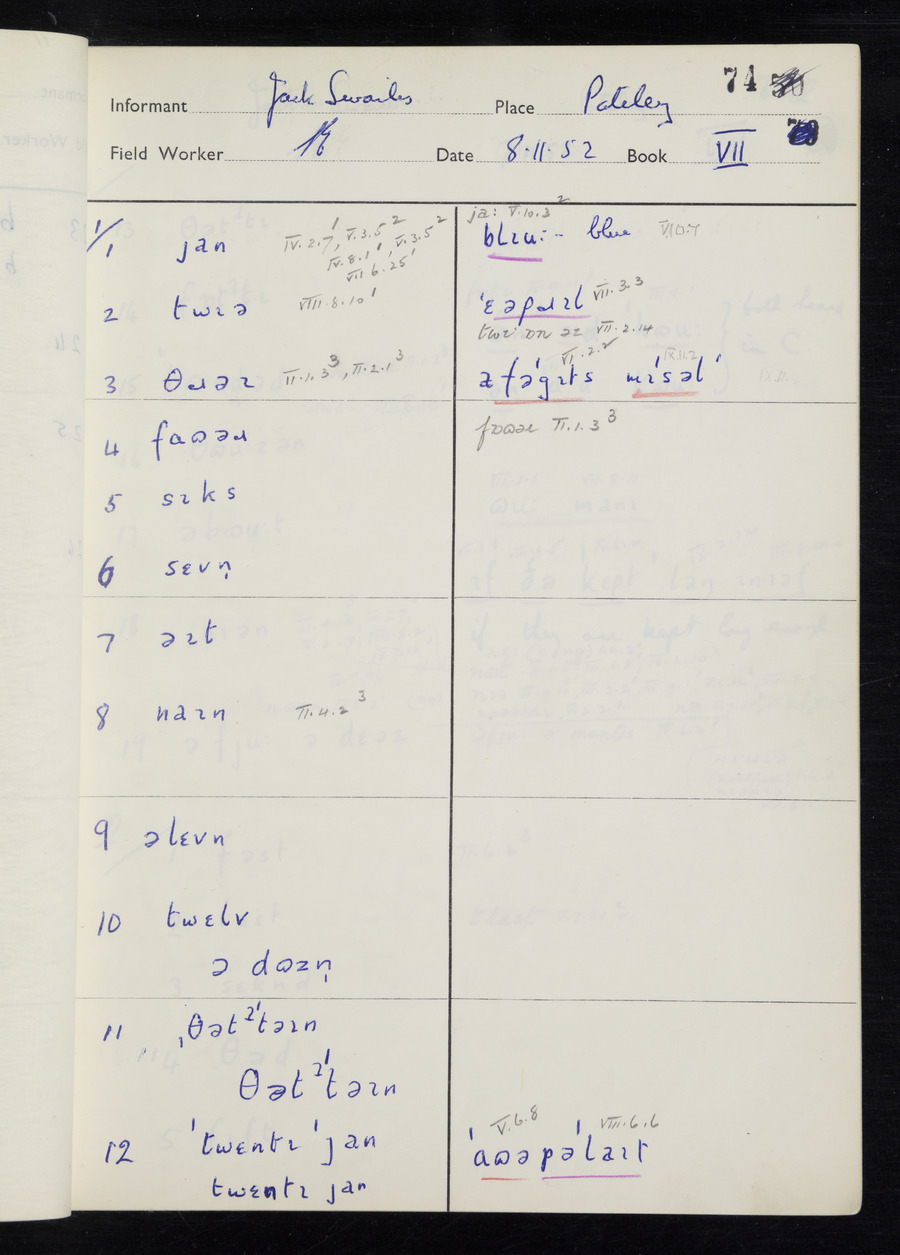 74
Informant Jack Swailes Place Pateley
Field Worker Date 8·11·52 Book VII
1/1 jan IV.2.7¹, V.3.5² IV.8.1¹, V.3.5² VII.6.25¹
ja: V.10.3²
blɪu: - blue VI.10.7
2 twɪə VIII.8.10¹
ˈɛəpɹɪl VII.3.3
twɪ ɒn əz VII.2.14
3 θɹəɪ II.1.3³, II.2.1³
VI.2.2 IX.11.2
mɪˈsəlˈ
4 faʊəɹ
II.1.3³
5 sɪks
6 sɛvn̩
7 əɪt
8 naɪn II.4.2³
9 əlɛvn
10 twɛlv
ə dʊzn̩
11 ˌθətˀˈtəɪn
θətˀˈtəɪn
12 ˈtwɛntɪ ˈjan
V.6.8 VIII.6.6
ˈaʊə pəˈlaɪt
twɛntɪ jan